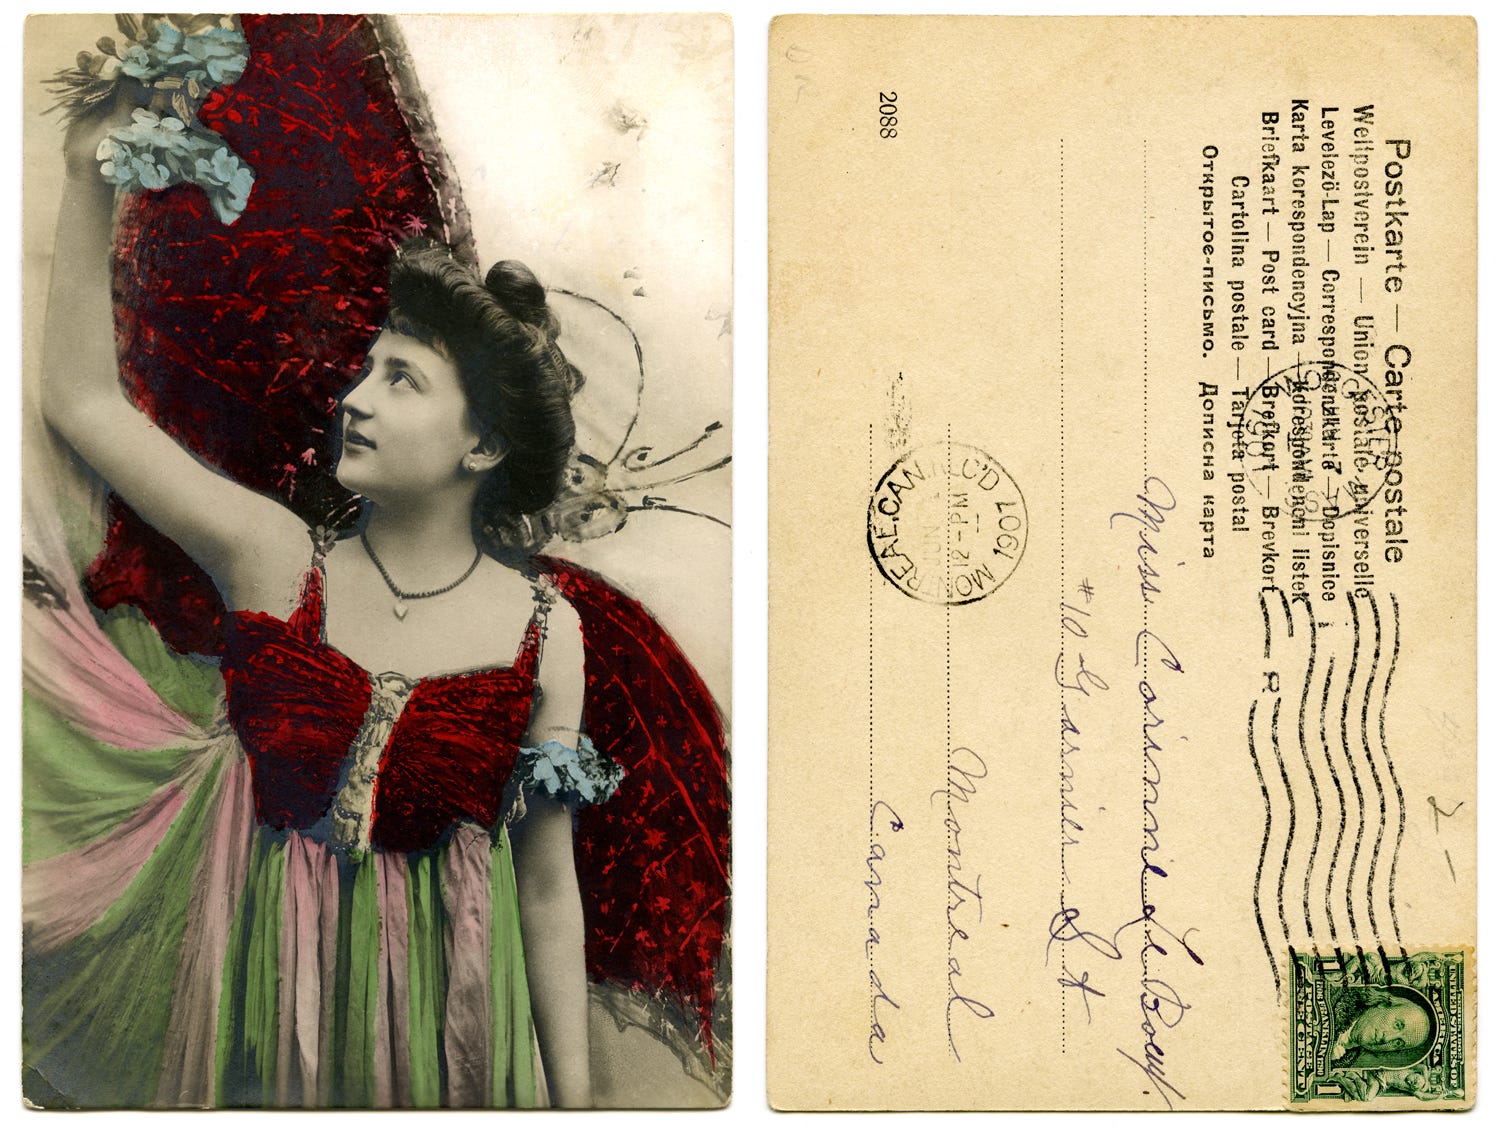 2088
Postkarte — Carte postale
Weltpostverein — Union postale universelle
Levelezö-Lap — Correspondenzkarte — Dopisnice
Karta korespondencyjna — Korespondencni listek
Briefkaart — Post card — Brefkort — Brevkort
Cartolina postale — Tarjeta postal
Открытое-письмо. Дописна карта
R
Miss Corinne Le Boeuf.
#10 Garnier St
Montreal
Canada
MONTREAL. CAN. REC'D
12-PM
1907
1907
2 -
UNITED STATES OF
AMERICA
BENJ. FRANKLIN
POSTAGE
ONE CENT
1
1